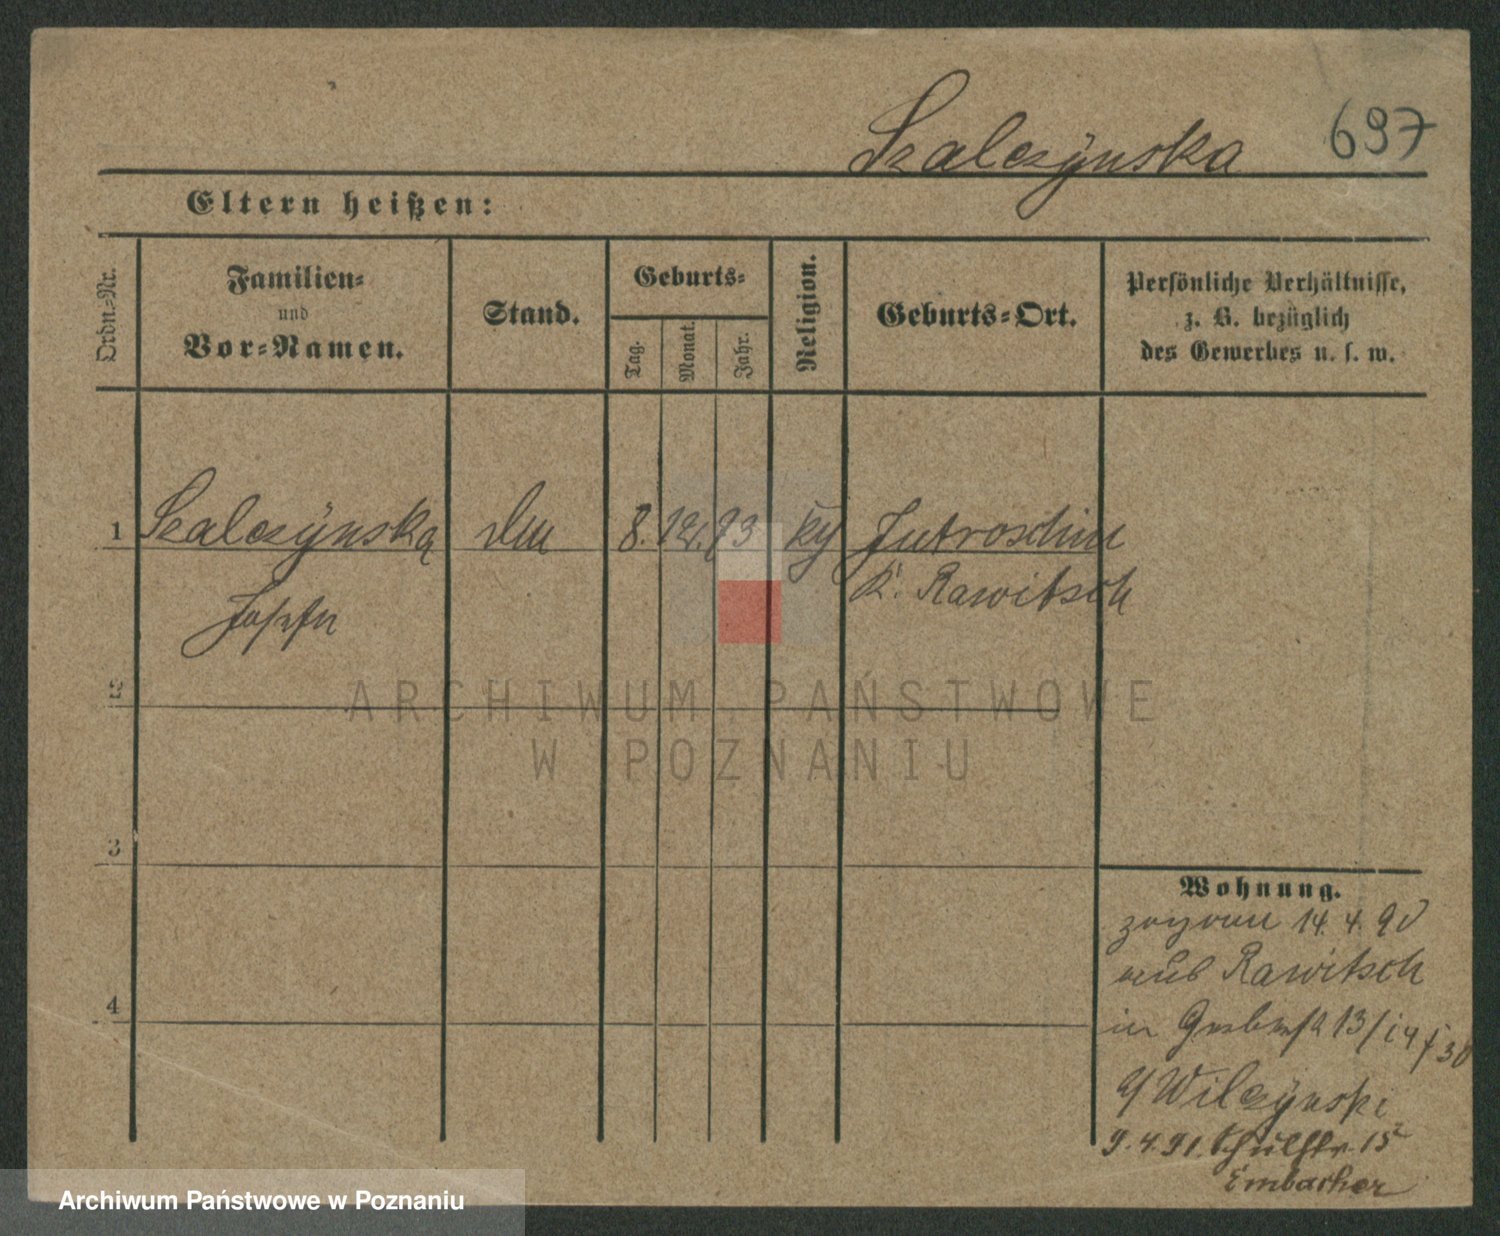 Szalczynska 697
Eltern heißen:
Ordn.-Nr.
Familien-
und
Vor-Namen.
Stand.
Geburts-
Tag.
Monat.
Jahr.
Religion.
Geburts-Ort.
Persönliche Verhältnisse,
z. B. bezüglich
des Gewerbes u. s. w.
1 Szalczynska 8. 12. 73 Jutroschin
K. Rawitsch
2
ARCHIWUM PAŃSTWOWE
W POZNANIU
3
4
Wohnung.
zugezogen 14. 4. 90
aus Rawitsch
in 13/14
Wilczynski
9. 4. 91. Schulstr. 15
Embacher
Archiwum Państwowe w Poznaniu